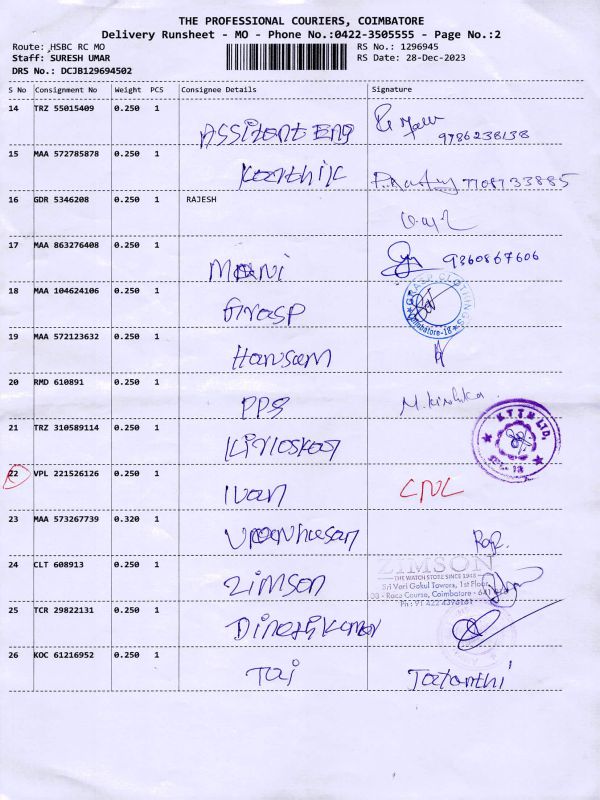 THE PROFESSIONAL COURIERS, COIMBATORE
Delivery Runsheet - MO - Phone No.:0422-3505555 - Page No.:2
Route: HSBC RC MO
RS No.: 1296945
Staff: SURESH UMAR
RS Date: 28-Dec-2023
DRS No.: DCJB129694502
S No Consignment No Weight PCS Consignee Details Signature
14 TRZ 55015409 0.250 1
Assitent Eng 9786238138
15 MAA 572785878 0.250 1
Karthik 7708733885
16 GDR 5346208 0.250 1 RAJESH
17 MAA 863276408 0.250 1
Mani 9360867606
18 MAA 104624106 0.250 1
Grasp
GRASP CLOTHINGS
Coimbatore-18
19 MAA 572123632 0.250 1
20 RMD 610891 0.250 1
PPS
21 TRZ 310589114 0.250 1
Kirloskar
K.T.T.M LTD.
22 VPL 221526126 0.250 1
Ivan
23 MAA 573267739 0.320 1
24 CLT 608913 0.250 1
Zimson
ZIMSON
THE WATCH STORE SINCE 1948
Sri Vari Gokul Towers, 1st Floor,
108 - Race Course, Coimbatore - 641
Ph : 91 422
25 TCR 29822131 0.250 1
Dineshkumar
26 KOC 61216952 0.250 1
Taj